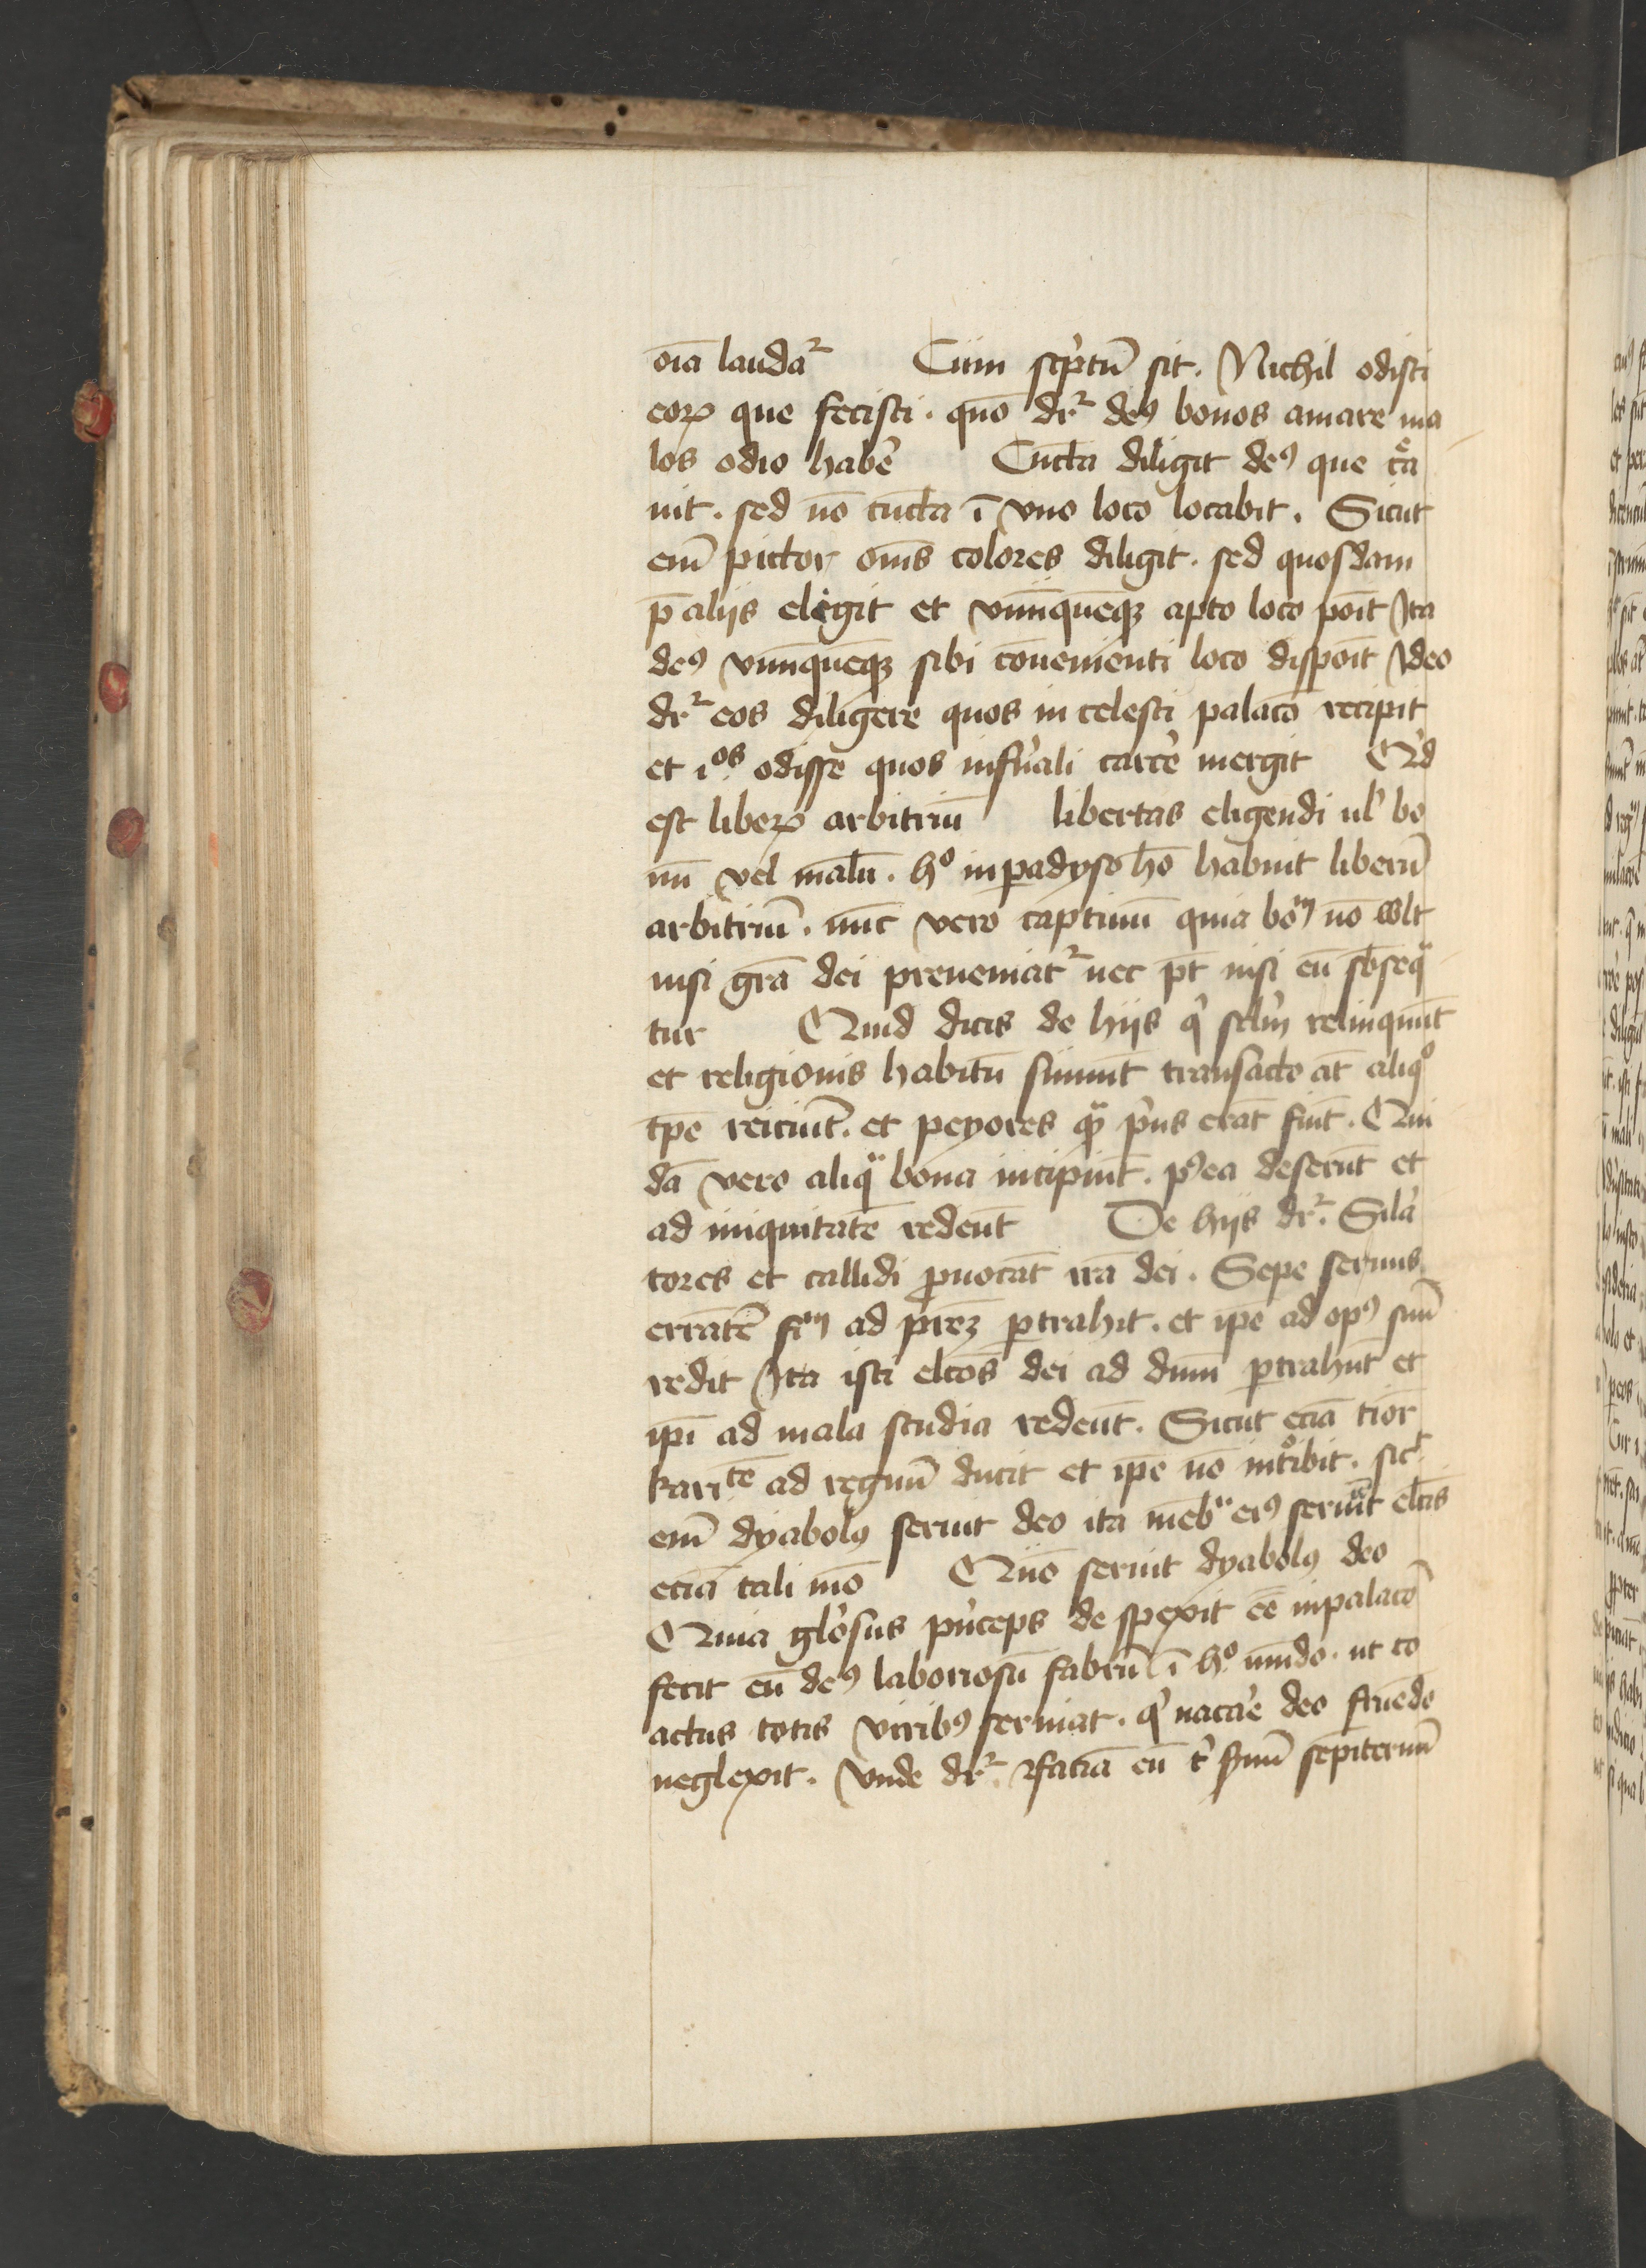 oīa lauda᷑ Cūm sc̓ptū sit. Nichil odisti
eoꝝ que fecisti. quō dr᷑ deꝰ bonos amare ma
los odio habē Cūcta diligit deꝰ que cͤa
uit. sed nō cūcta ī vno loco locabit. Sicut
em̄ pictor om̄s colores diligit. sed quosdam
p̄ alijs elegit et vnūquēqꝫ apto loco poīt Ita
deꝰ vnūquēqꝫ sibi cōuenienti loco dispoīt Ideo
dr᷑ eos diligere quos in celesti palacō recipit
et ıͦˢ odisse quos inf̓nali carcē mergit Q̓d
est libeꝝ arbitriū libertas eligendi ul̓ bo
nū vel malū. hͦ in ꝑadyso hō habuit liberū
arbitriū. nūc vero captiuū quia boᵐ nō wlt
nisi gr̄a dei preueniat᷑ nec pt̄ nisi eū sb̄seqͣ
tur Quid dicis de hijs qͥ sclm̄ relinquūt
et religionis habitū sumūt transacto at̄ aliqͦ
tpe̅ reiciūt. et peyores qͣꝫ p̓us erāt fiūt. Qui
dā vero aliqͣ bona incipiūt. pꝰea deserūt et
ad iniquitatē redeūt De hijs dr᷑. Sila
tores et callidi ꝓuocāt irā dei. Sepe seruus
errātē fiᵐ ad pr̄eꝫ ꝑtrahit. et ip̄e ad opꝰ suū
redit Ita isti elc̄os dei ad dn̄m ꝑtrahūt et
ip̄i ad mala studia redeūt. Sicut eciā tior
kariᵗᵉ ad regnū ducit et ip̄e nō intͦibit. sicͭ
em̄ dyabolꝰ seruit deo ita mēbͣ eiꝰ seruiūt elc̄is
eciā tali mō Quō seruit dyabolꝰ deo
Quia glo̓sus p̓nceps de spexit ee̅ in palacō
fecit eū deꝰ laboriosū fabrū ī hͦ mūdo. ut co
actus totis viribꝰ seruiat. qͥ uaccāe deo fruēdo
neglexit. Vnde dr᷑. ꝛfaciā eū t̓ s̓uū sēpiternū